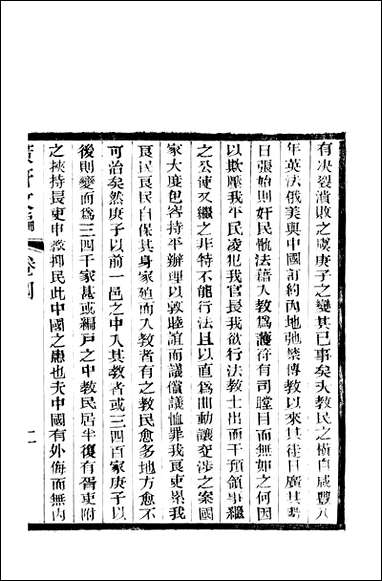 有决裂潰敗之虞庚子之變其已事矣夫教民之橫自咸豐八
年英法俄美與中國訂約內地弛禁傳教以來其徒日廣其勢
日張始則奸民骫法藉入教爲護符有司瞠目而無如之何因
以欺壓我平民凌犯我官長我欲行法教士出而干預領事繼
之公使又繼之非特不能行法且以直爲曲動讓交涉之案國
家大度包容持平辦理以敦睦誼而議償議恤罪我良吏累我
良民良民自保其身家殖而入教者有之教民愈多地方愈不
可治矣然庚子以前一邑之中入其教者或三四百家庚子以
後則變而爲三四千家甚或編戶之中教民居半復有胥吏附
之挾持長吏申教抑民此中國之患也夫中國有外侮而無內
卷四
二